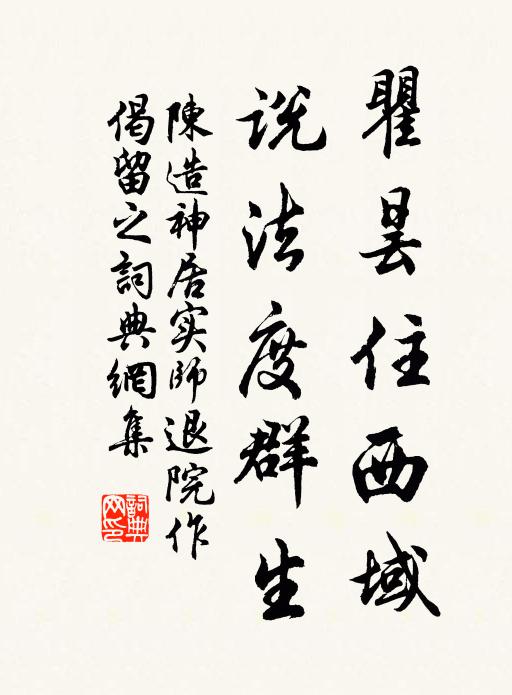 瞿昙住西域
说法度群生
陳造神居实師退院作
偈留之詞典網集
詞典网印